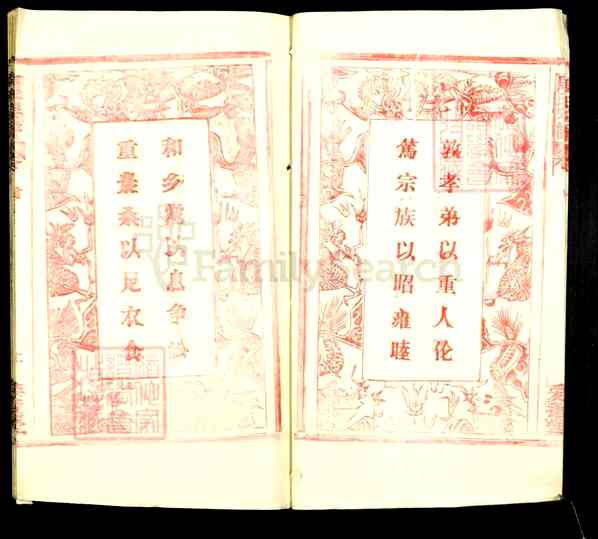 敦孝弟以重人伦
篤宗族以昭雍睦
和乡黨以息争訟
重農桑以足衣食
FamilySearch